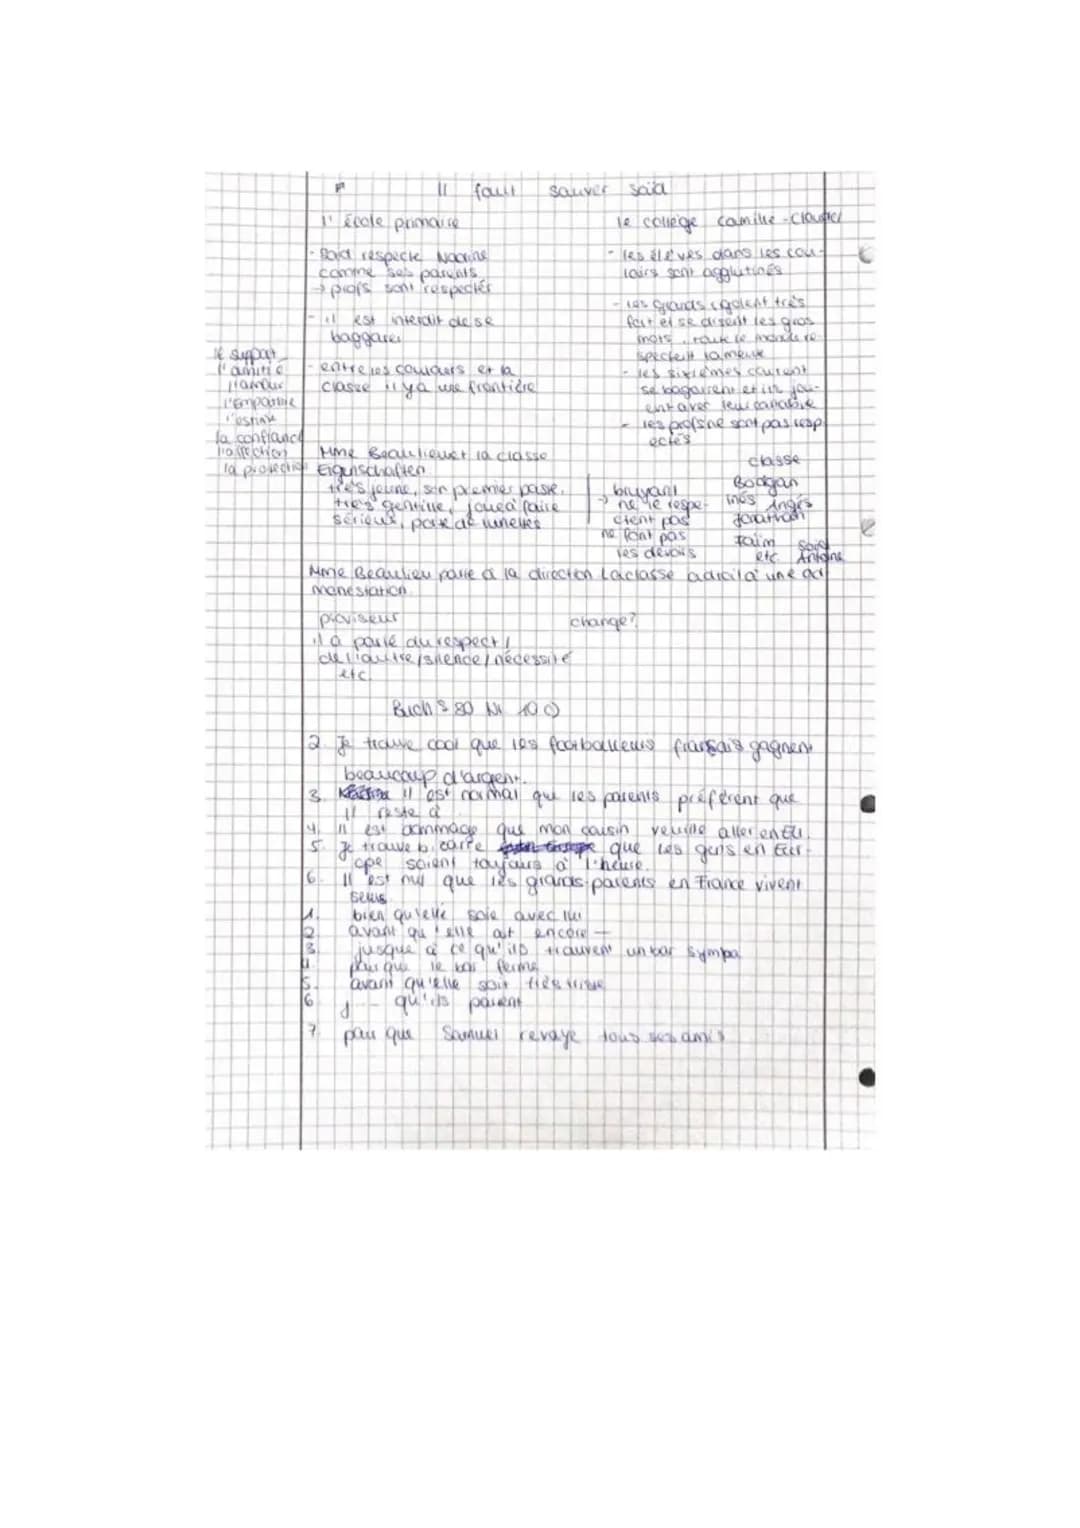 Il faut sauver Saïd
l'école primaire
- Saïd respecte Nadine
comme ses parents
→ profs sont respectés
- il est interdit de se
baggarer
- entre les couloirs et la
classe il y a une frontière
le collège Camille-Claudel
- les élèves dans les cou-
loirs sont agglutinés
- les grands rigolent très
fort et se disent les gros
mots, toute le monde re-
- les sixièmes courent
se bagarrent et
ent avec leur
- les profs ne sont pas resp
ectés
le support
l'amitié
l'amour
l'empathie
l'estime
la confiance
l'affection
la protection
Mme Beaulieu et la classe
Eigenschaften
très jeune, son premier poste,
très gentille, joue à faire
sérieux, porte de lunettes
bruyant
→ ne le respe-
ctent pas
ne font pas
les devoirs
classe
Bodgan
Inés Angès
Jonathan
Taïm Saïd
etc. Antoine
Mme Beaulieu parle à la direction La classe a droit à une ad
monestation
proviseur change?
il a parlé du respect /
de l'autre / silence / nécessité
etc.
Buch S 80 Nr 10 c)
2. Je trouve cool que les footballeurs français gagnent
beaucoup d'argent.
3. Il est normal que les parents préfèrent que
il reste à
4. Il est dommage que mon cousin veuille aller en EU.
5. Je trouve bizarre que les gens en Eur-
ope soient toujours à l'heure.
6. Il est nul que les grands-parents en France vivent
seuls
1. bien qu'elle soie avec lui
2. avant qu'elle ait encore —
3. jusque à ce qu'ils trouvent un bar sympa
4. pour que le bar ferme
5. avant qu'elle soit très
6. j --- qu'ils paient
7. pour que Samuel revoye tous ses amis